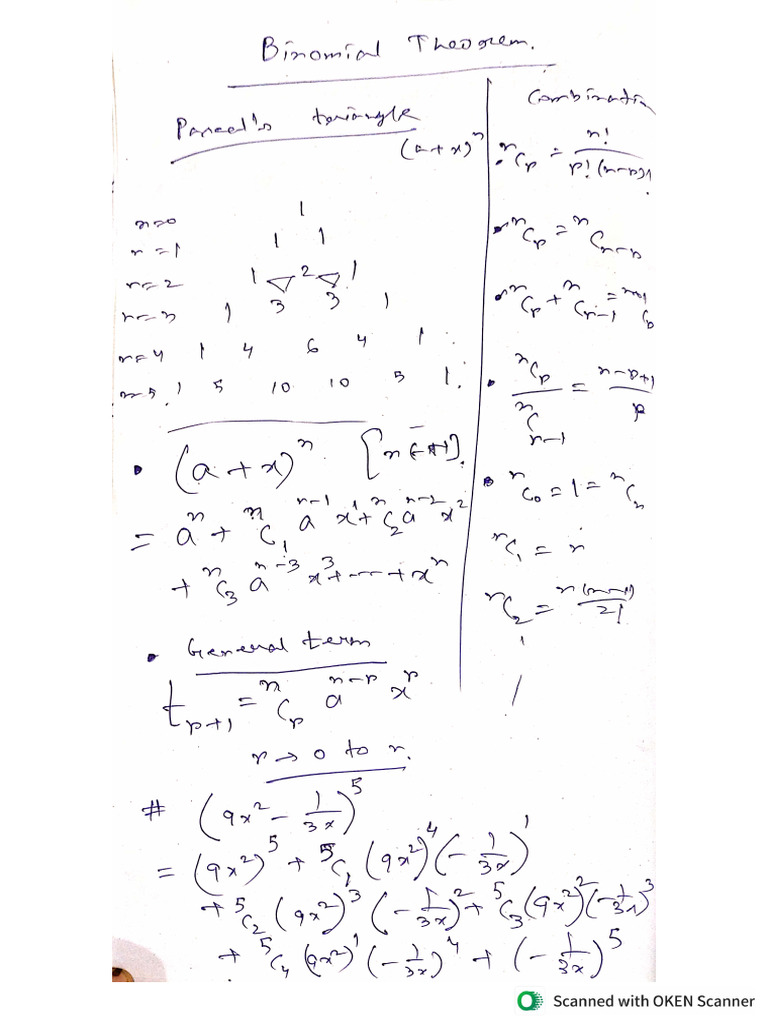 Binomial Theorem.
Pascal's triangle
(a+x)ⁿ
n=0 1
n=1 1 1
n=2 1 2 1
n=3 1 3 3 1
n=4 1 4 6 4 1
n=5 1 5 10 10 5 1
• (a+x)ⁿ
= aⁿ + ⁿC₁ aⁿ⁻¹ x¹ + ⁿC₂ aⁿ⁻² x²
+ ⁿC₃ aⁿ⁻³ x³ + --- + xⁿ
• General term
tᵣ₊₁ = ⁿCᵣ aⁿ⁻ʳ xʳ
r → 0 to n.
# (9x² - 1/3x)⁵
= (9x²)⁵ + ⁵C₁ (9x²)⁴ (-1/3x)¹
+ ⁵C₂ (9x²)³ (-1/3x)² + ⁵C₃ (9x²)² (-1/3x)³
+ ⁵C₄ (9x²)¹ (-1/3x)⁴ + (-1/3x)⁵
Combinatio
• ⁿCᵣ = n!/r!(n-r)!
• ⁿCᵣ = ⁿCₙ₋ᵣ
• ⁿCᵣ + ⁿCᵣ₋₁ = ⁿ⁺¹Cᵣ
• ⁿCᵣ/ⁿCᵣ₋₁ = n-r+1/r
• ⁿC₀ = 1 = ⁿCₙ
ⁿC₁ = n
ⁿC₂ = n(n-1)/2!
Scanned with OKEN Scanner